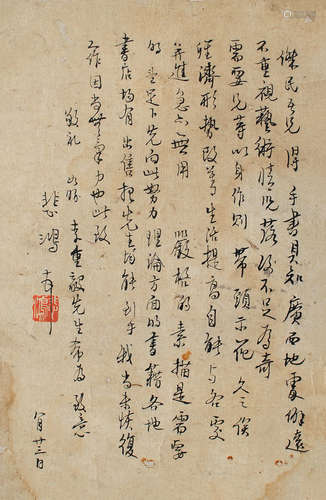 傑民吾兄 得手書具知廣西地處僻遠
不重視藝術情況落後不足為奇
需要兄等以身作則 帶頭示範 久之俟
經濟形勢改善生活提高自能與各處
并進急亦無用 嚴格的素描是需要
的 望足下先向此努力 理論方面的書籍各地
書店均有出售 想先生均能到手 我尚未恢復
工作因書數筆力也此致
敬禮
李重毅先生希為致意
悲鴻
八月廿三日